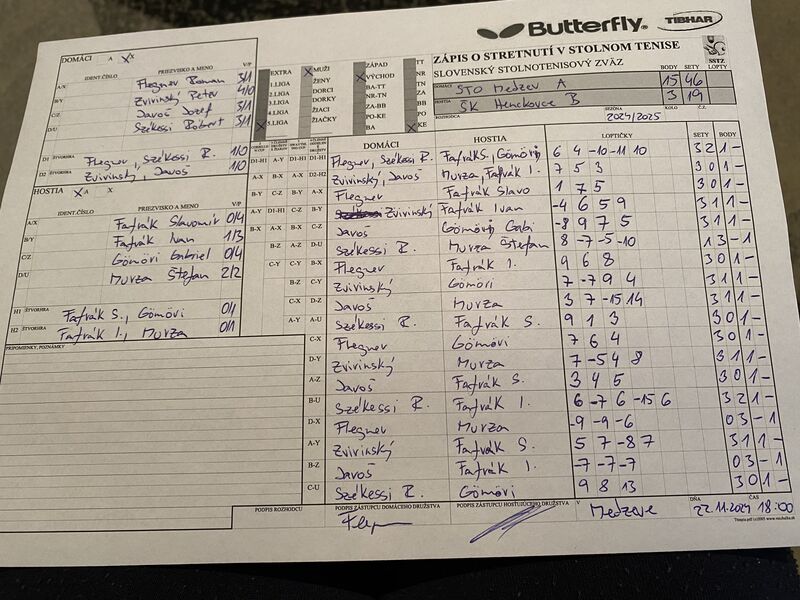 Butterfly
TIBHAR
ZÁPIS O STRETNUTÍ V STOLNOM TENISE
SLOVENSKÝ STOLNOTENISOVÝ ZVÄZ
SSTZ
BODY SETY LOPTY
DOMÁCI STO Medzev A 15 46
HOSTIA SK Henckovce B 3 19
ROZHODCA SEZÓNA KOLO Č.Z.
2024/2025
DOMÁCI A X X
IDENT.ČÍSLO PRIEZVISKO A MENO V/P
A/X Flegner Roman 3/1
B/Y Zvirinský Peter 4/0
C/Z Javoš Jozef 3/1
D/U Székessi Róbert 3/1
D1 ŠTVORHRA Flegner, Székessi R. 1/0
D2 ŠTVORHRA Zvirinský, Javoš 1/0
HOSTIA X A X
IDENT.ČÍSLO PRIEZVISKO A MENO V/P
A/X Fafrák Slavomír 0/4
B/Y Fafrák Ivan 1/3
C/Z Gömöri Gabriel 0/4
D/U Murza Štefan 2/2
H1 ŠTVORHRA Fafrák S., Gömöri 0/1
H2 ŠTVORHRA Fafrák I., Murza 0/1
PRIPOMIENKY, POZNÁMKY
EXTRA X MUŽI ZÁPAD TT
1.LIGA ŽENY X VÝCHOD NR
2.LIGA DORCI BA-TT TN
3.LIGA DORKY NR-TN ZA
4.LIGA ŽIACI ZA-BB BB
5.LIGA ŽIAČKY PO-KE PO
X BA X KE
DOMÁCI HOSTIA LOPTIČKY SETY BODY
D1-H1 A-Y D1-H1 D1-H1 Flegner, Székessi R. Fafrák S., Gömöri 6 4 -10 -11 10 3 2 1 -
A-X B-X A-X D2-H2 Zvirinský, Javoš Murza, Fafrák I. 7 5 3 3 0 1 -
B-Y C-Z B-Y A-X Flegner Fafrák Slavo 1 7 5 3 0 1 -
A-Y D1-H1 C-Z B-Y Zvirinský Fafrák Ivan -4 6 5 9 3 1 1 -
B-X A-X B-X C-Z Javoš Gömöri Gabi -8 9 7 5 3 1 1 -
B-Z A-Z D-U Székessi R. Murza Štefan 8 -7 -5 -10 1 3 - 1
C-Y C-Y B-X Flegner Fafrák I. 9 6 8 3 0 1 -
B-Z C-Y Zvirinský Gömöri 7 -7 9 4 3 1 1 -
C-X D-Z Javoš Murza 3 7 -15 14 3 1 1 -
A-Y A-U Székessi R. Fafrák S. 9 1 3 3 0 1 -
C-X Flegner Gömöri 7 6 4 3 0 1 -
D-Y Zvirinský Murza 7 -5 4 8 3 1 1 -
A-Z Javoš Fafrák S. 3 4 5 3 0 1 -
B-U Székessi R. Fafrák I. 6 -7 6 -15 6 3 2 1 -
D-X Flegner Murza -9 -9 -6 0 3 - 1
A-Y Zvirinský Fafrák S. 5 7 -8 7 3 1 1 -
B-Z Javoš Fafrák I. -7 -7 -7 0 3 - 1
C-U Székessi R. Gömöri 9 8 13 3 0 1 -
PODPIS ROZHODCU PODPIS ZÁSTUPCU DOMÁCEHO DRUŽSTVA PODPIS ZÁSTUPCU HOSŤUJÚCEHO DRUŽSTVA V DŇA ČAS
Medzeve 22.11.2024 18:00